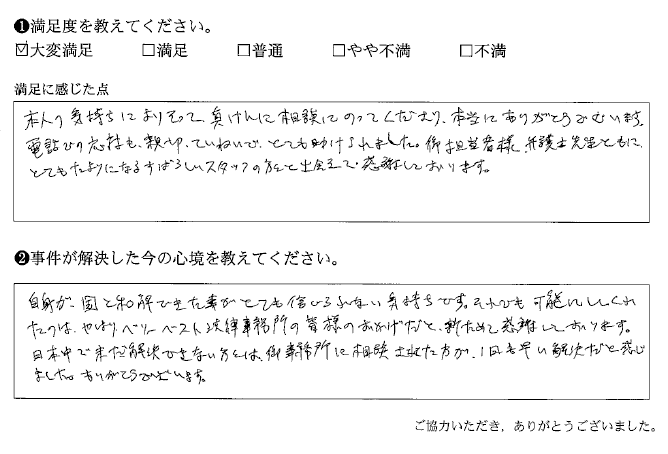 ❶満足度を教えてください。
☑大変満足 □満足 □普通 □やや不満 □不満
満足に感じた点
本人の気持ちによりそって、真けんに相談にのってくださり、本当にありがとうございます。
電話での応対も、親切、ていねいで、とても助けられました。御担当者様、弁護士先生ともに、
とてもたよりになるすばらしいスタッフの方々と出会えて、感謝しております。
❷事件が解決した今の心境を教えてください。
自身が、国と和解できた事がとても信じられない気持ちです。それでも可能にしてくれ
たのは、やはりベリーベスト法律事務所の皆様のおかげだと、新ためて感謝しております。
日本中で未だ解決できない方々は、御事務所に相談された方が、1日も早い解決だと感じ
ました。ありがとうございます。
ご協力いただき，ありがとうございました。